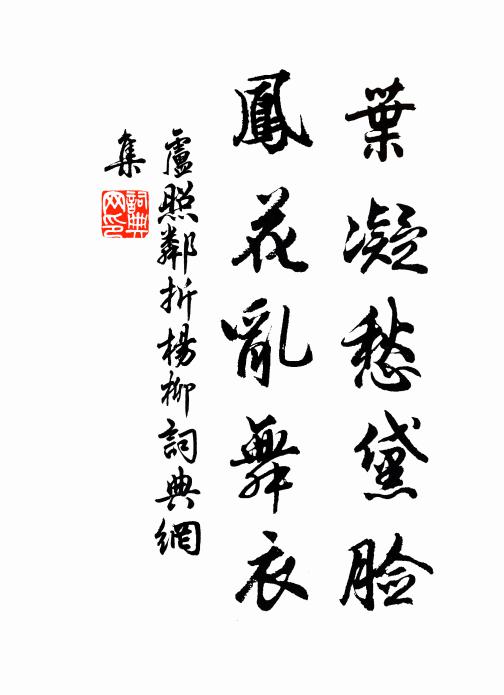 葉凝愁黛脸
鳳花亂舞衣
盧照鄰折楊柳詞典網
集
詞典
网印